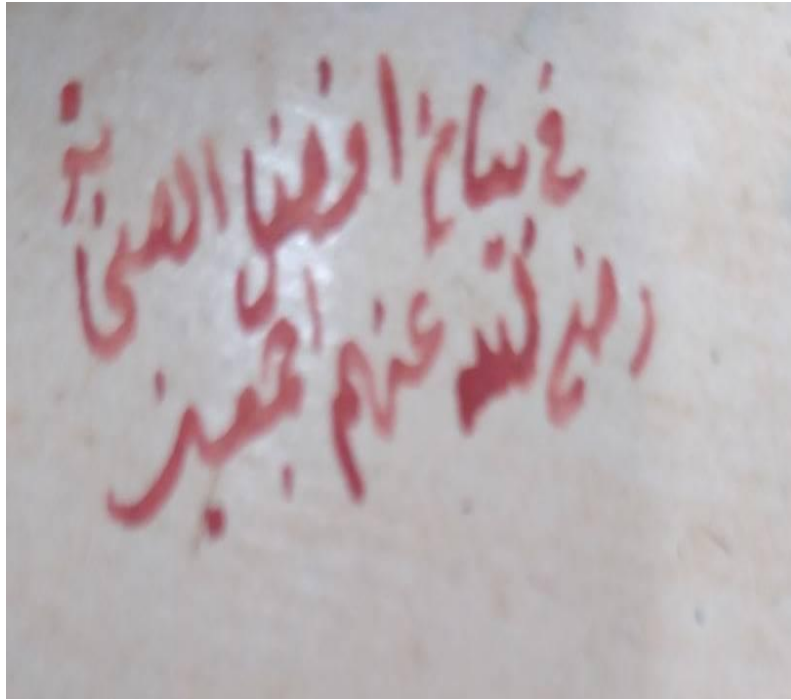 في بيان افضل الصحابة
رضي الله عنهم اجمعين